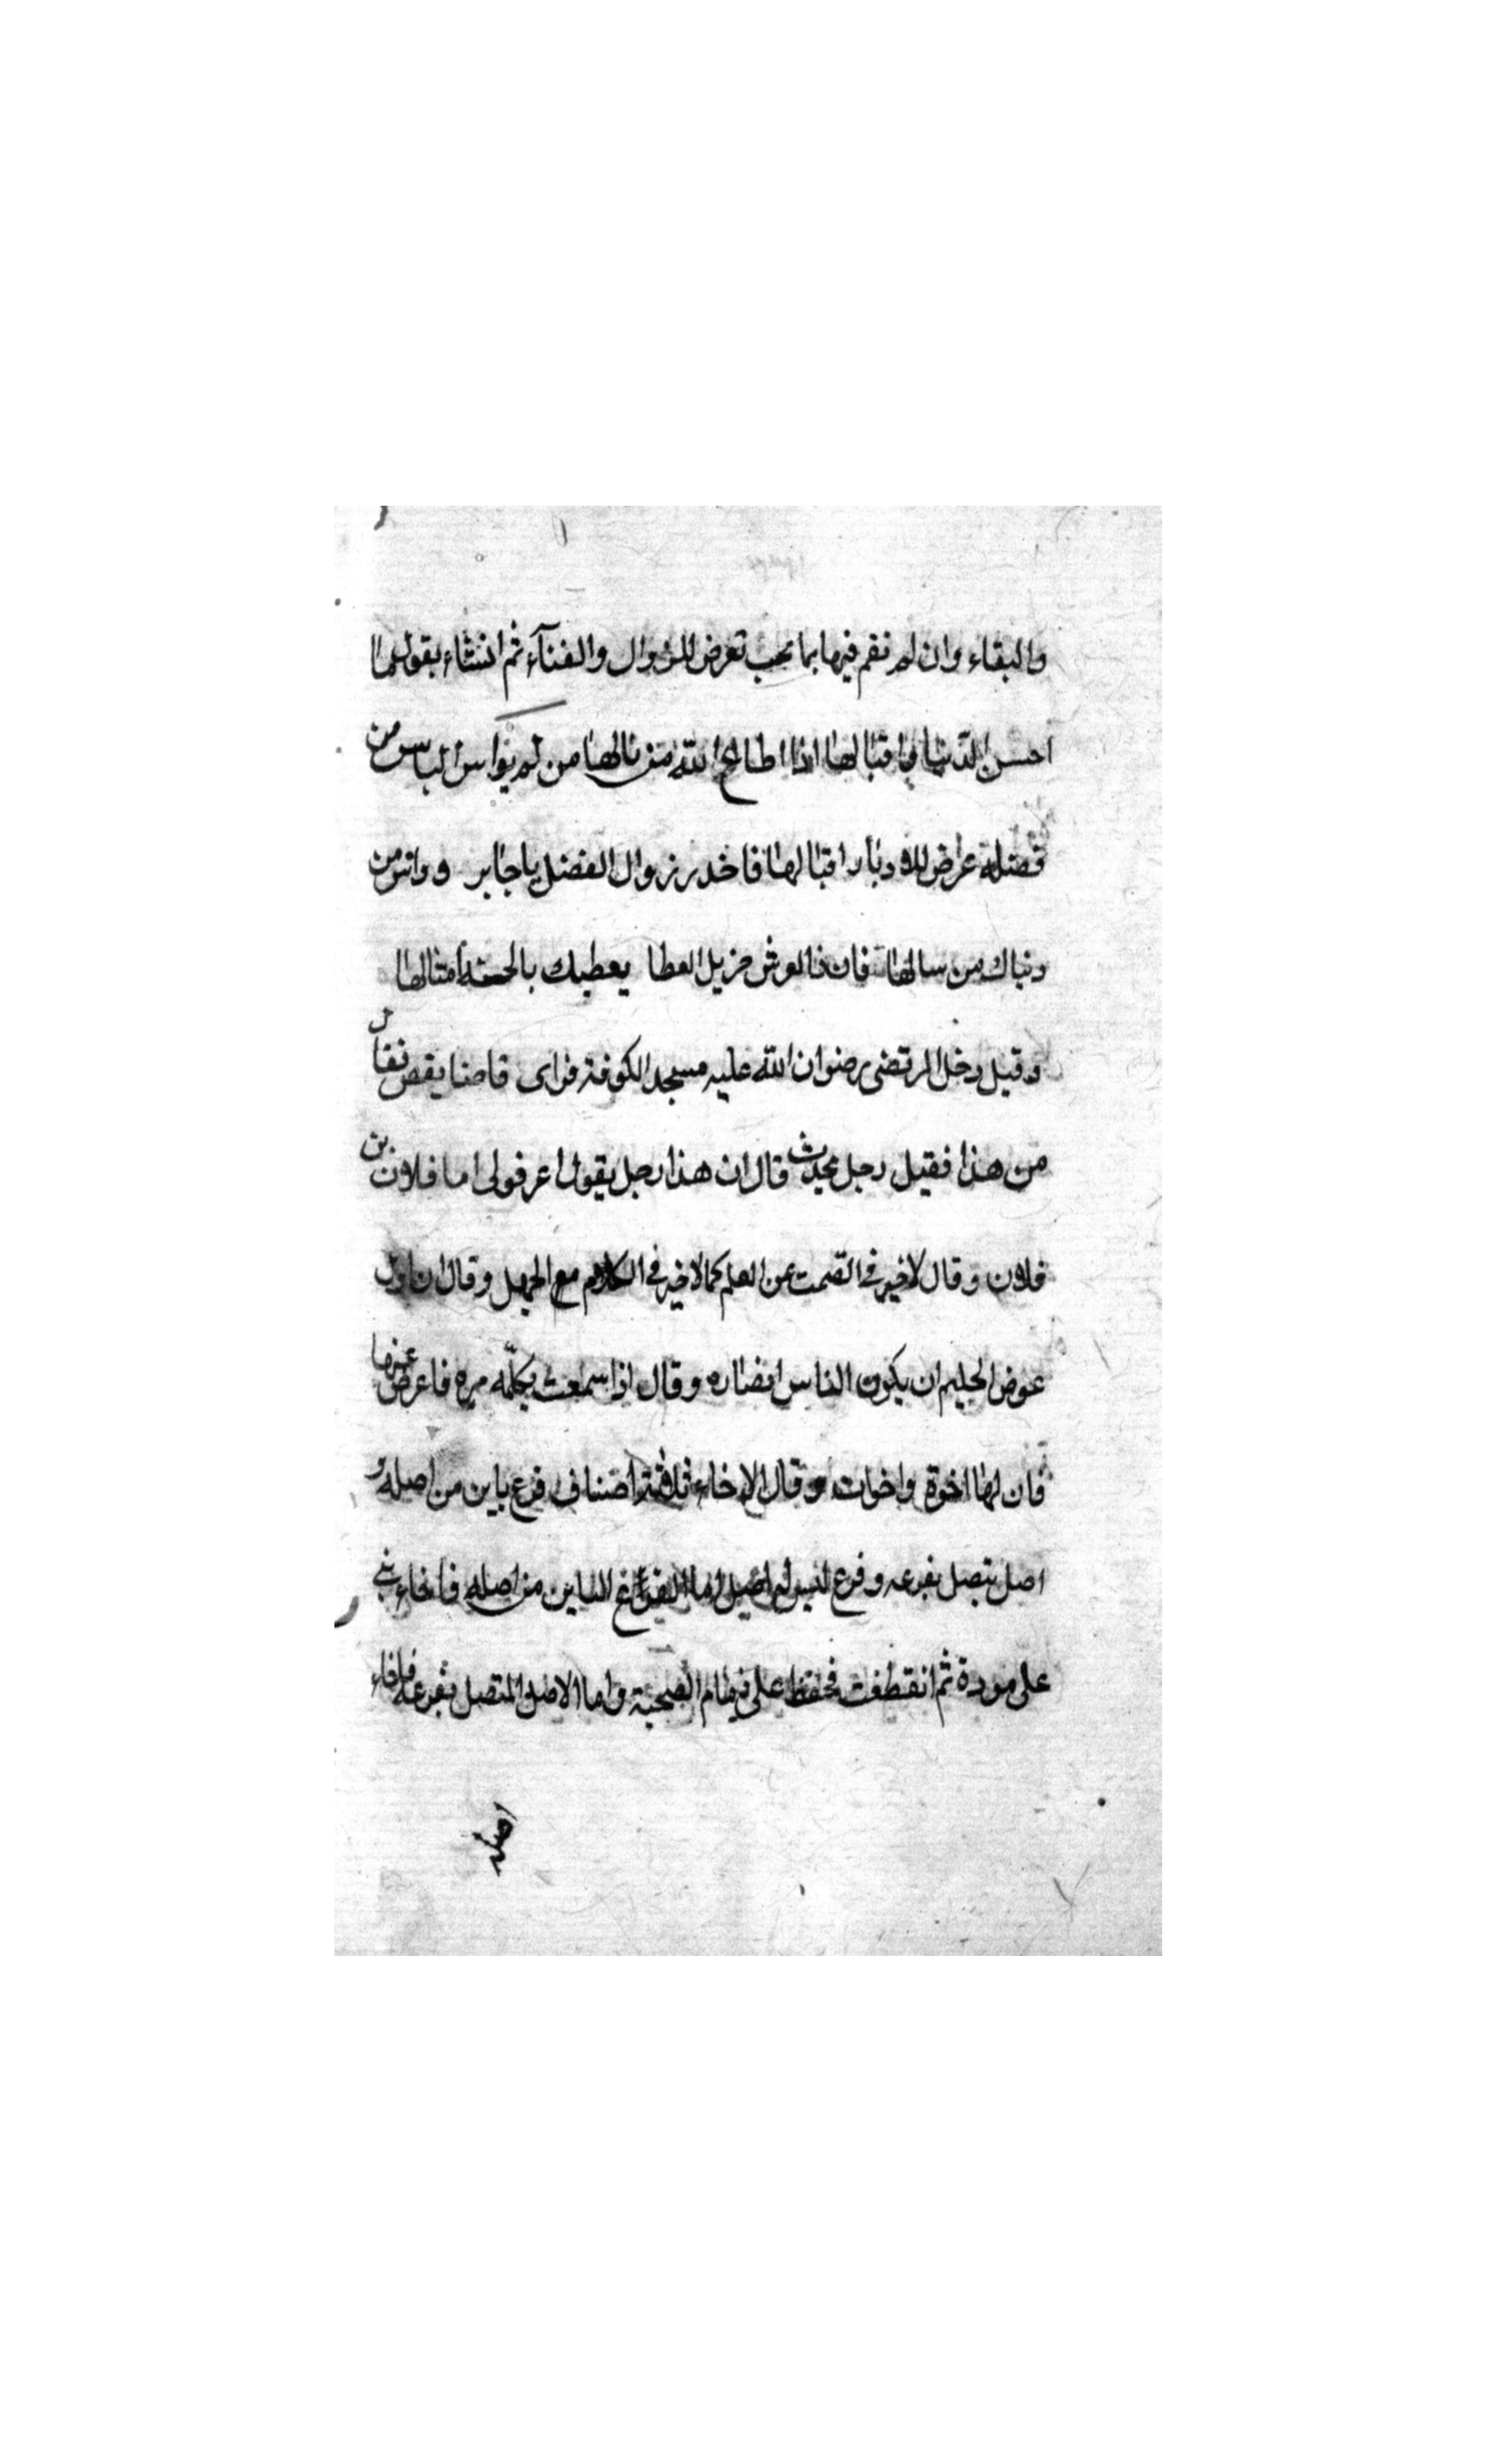 والبقاء وان لم نقم فيها بما يحب تعرض للزوال والفنآء ثم انشاء يقول ما
احسن الدنيا واقبالها اذا اطاع الله من نالها من لم يواس الناس من
فضله عرض للادبار اقبالها فاخدر زوال الفضل يا جابر وواس من
دنياك من سالها فان ذا العرش جزيل العطا يعطيك بالحسنة امثالها
وقيل دخل المرتضى رضوان الله عليه مسجد الكوفة فراى قاصا يقص فقال
من هذا فقيل رجل يحدث قال ان هذا رجل يقول اعرفولى اما فلان بن
فلان وقال لاخير فى الصمت عن العلم كما لاخير فى الكلام مع الجهل وقال ان اول
عوض الحليم ان يكون الناس انصاره وقال اذا سمعت بكلمه مره فاعرض عنها
فان لها اخوة واخوات وقال الاخاء ثلاثة اصناف فرع باين من اصله و
اصل يتصل بفرعه وفرع ليس له اصل اما الفرع الباين من اصله فاخاء بنى
على مودة ثم انقطعت فحفظ على ذمام الصحبة واما الاصل المتصل بفرعه فاخاء
اصله